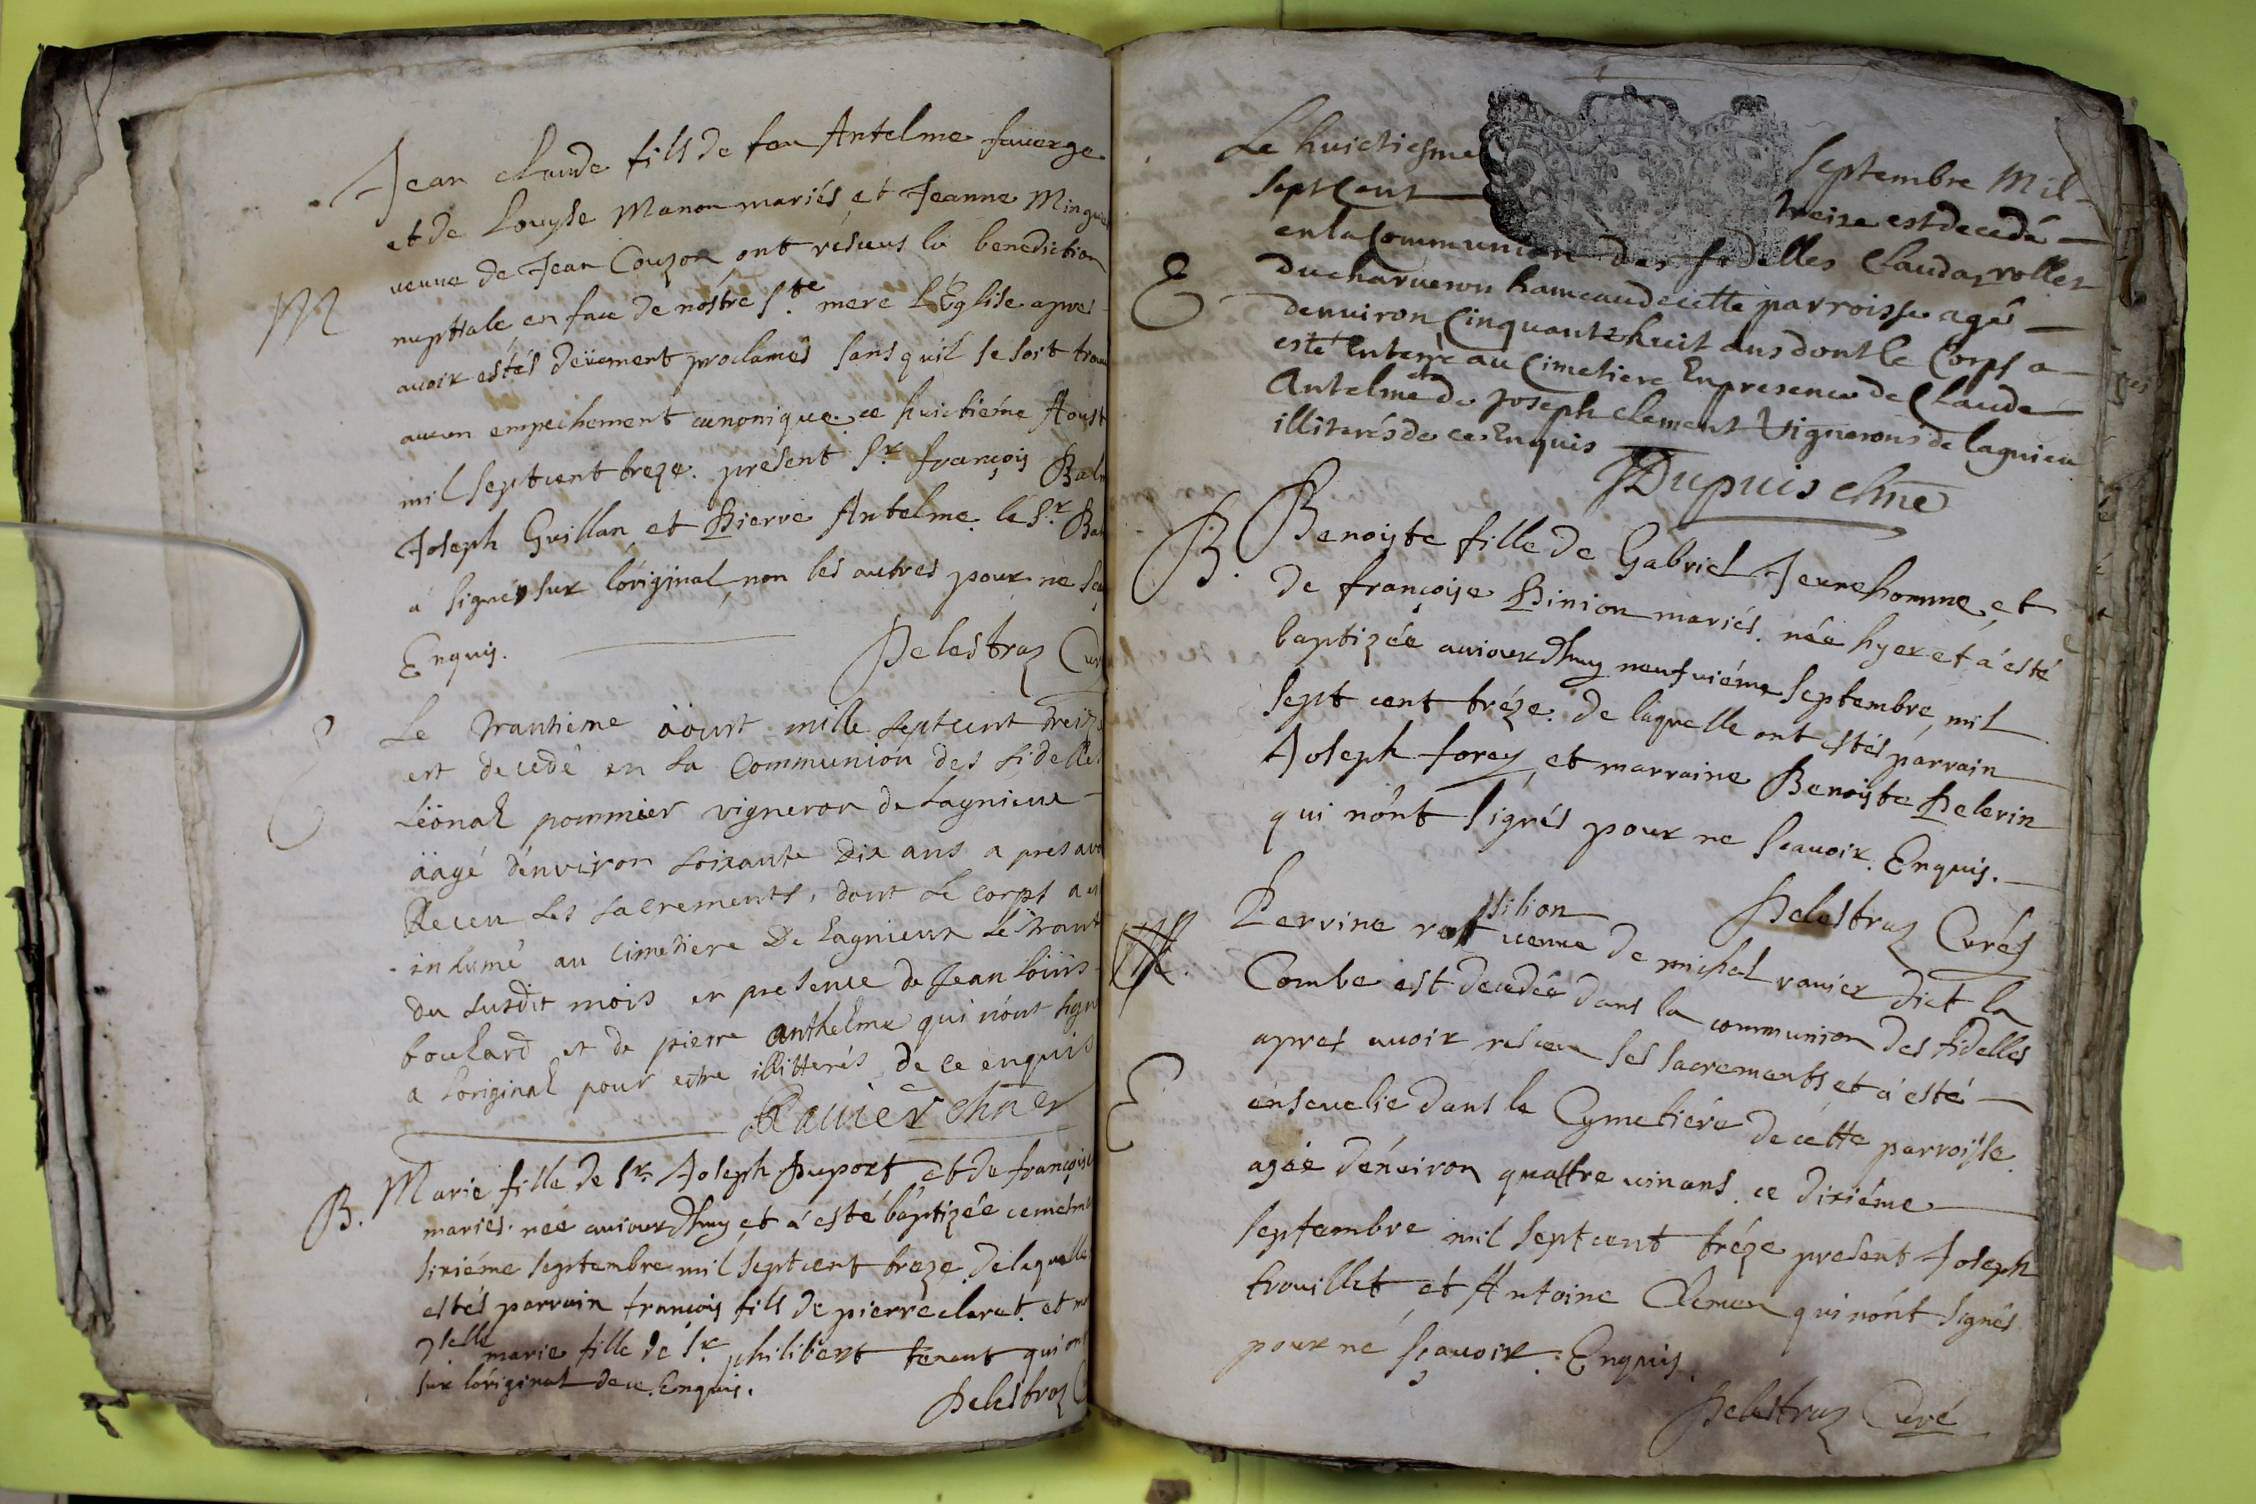 Jean Claude fils de feu Antelme faverge
et de Louysse Manon mariés, et Jeanne Mingue
veuve de Jean Couzon ont resceus la benediction
M
nuptiale en face de nostre Ste mere l'Eglise apres
avoir estés deüement proclamés sans quil se soit trou
aucun empechement canonique ce huictiéme Aoust
mil septcent treze. present Sr françois Bal
Joseph Guillan et Pierre Antelme. le Sr Ba
a signé sur l'original, non les autres pour ne sça
Enquis.
Delestraz Cur
Le trantieme äoust mille septcent treiz
est decedé en La Communion des fidelles
Leönal pommier vigneron de Lagnieu
äagé d'environ soixante dix ans apres avo
Receu Les sacrements, dont Le corps a es
inhumé au cimetiere De Lagnieux Le trant
du susdit mois en presence de Jean Loüis
bouhard et de pierre anthelme qui n'ont sign
a L'original pour estre illitterés de ce enquis
Ravier
B. Marie fille de Sr Joseph Duport et de françoise
mariés. née aujourdhuy, et a esté baptizée ce mesme
sixiéme septembre mil septcent treze. de laquelle
estés parrain françois fils de pierre claret. et m
Dlle marie fille de Sr philibert tenant qui ont
sur l'original de ce. Enquis.
Delestraz C
Le huictiesme septembre Mil
sept Cent treize est decedé
en la Communion des fidelles Claudas rollet
E
du charveron hameau de cette parroisse agé
denviron Cinquante huit ans dont le Corps a
esté Enterré au Cimetiere En presence de Claude
Antelme et de Joseph Clement Vignerons de lagnieu
illiterés de ce Enquis
Dupuis
B. Benoiste fille de Gabriel Jeunehomme, et
de françoise Binion mariés. née hyer et a esté
baptizée aujourdhuy neufviéme septembre, mil
sept cent tréze. de laquelle ont estés parrain
Joseph forey, et marraine Benoiste Pelerin
qui nont signés pour ne scavoir. Enquis.
Delestraz Curéz
Pervine veuve de michel ravier dict la
Combe est decedée dans la communion des fidelles
apres avoir resceu ses sacrements, et a esté
E
ensevelie dans le Cymetiére de cette parroisse.
agée d'environ quattre vin ans. ce dixiéme
septembre mil septcent tréze present Joseph
trouillet et Antoine Clemen qui nont signés
pour ne sçavoir. Enquis.
Delestraz Curé